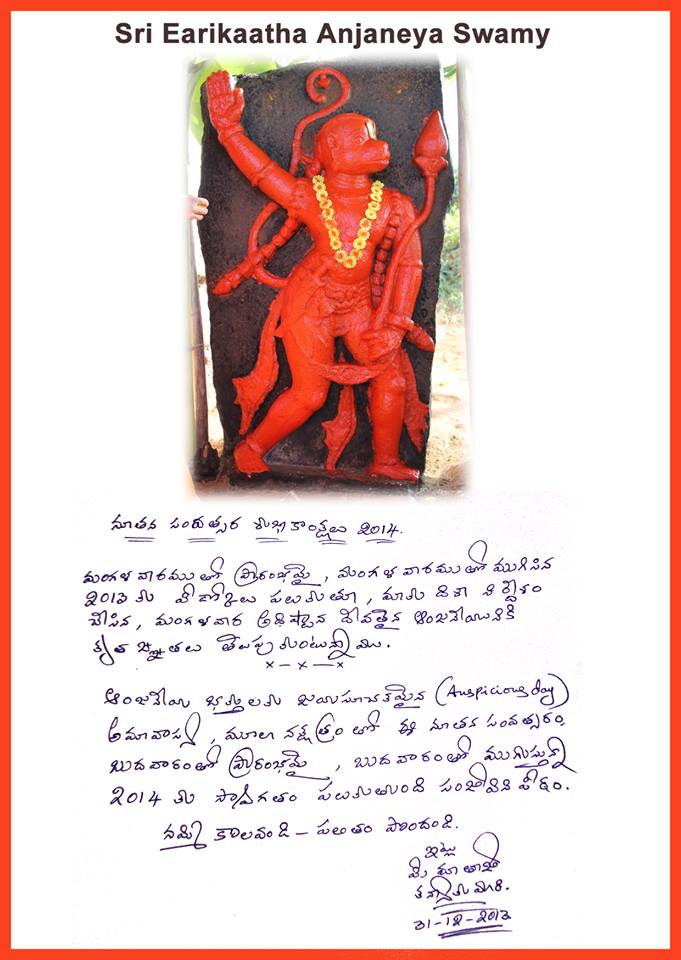 Sri Earikaatha Anjaneya Swamy
నూతన సంవత్సర శుభాకాంక్షలు 2014.
మంగళ వారముతో ప్రారంభమై, మంగళ వారముతో ముగిసిన
2013 కు వీడ్కోలు పలుకుతూ, మాకు దిశా నిర్దేశం
చేసిన, మంగళవార అధిష్టాన దేవతైన ఆంజనేయునికి
కృతజ్ఞతలు తెలుపుకుంటున్నాము.
x – x – x
ఆంజనేయ భక్తులకు జయసూచకమైన (Auspicious day)
అమావాస్య, మూలా నక్షత్రం తో ఈ నూతన సంవత్సరం
బుదవారంతో ప్రారంభమై, బుదవారంతో ముగుస్తున్న
2014 కు స్వాగతం పలుకుతుంది సంజీవిని పీఠం.
నమ్మి కొలవండి – ఫలితం పొందండి.
ఇట్లు
మీ
31-12-2013